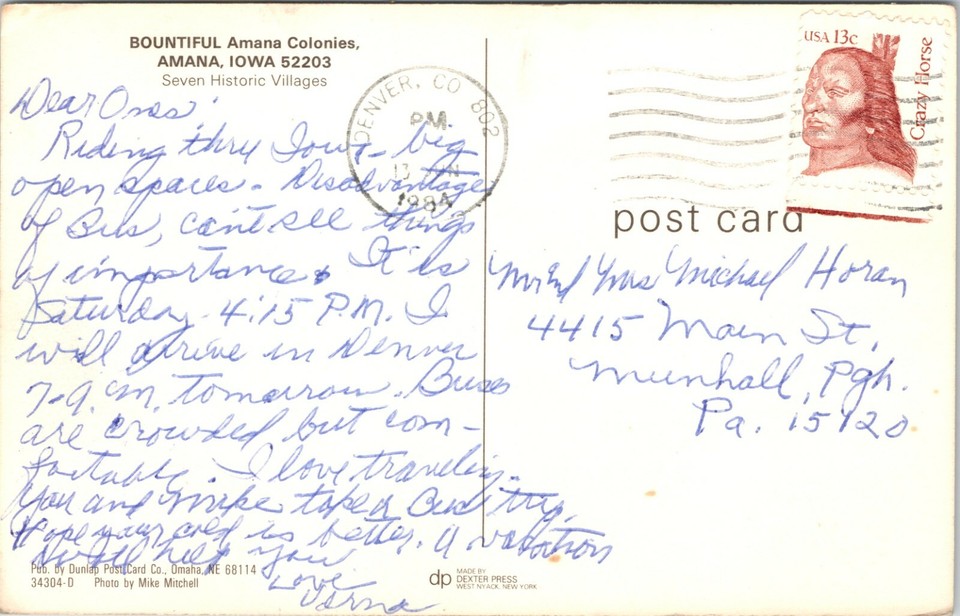 BOUNTIFUL Amana Colonies,
AMANA, IOWA 52203
Seven Historic Villages
Dear Ones:
Riding thru Iowa - big
open spaces - Disadvantage
of Bus, can't see things
of importance. It is
Saturday 4:15 P.M. I
will arrive in Denver
7-9. A.M. tomorrow. Buses
are crowded but com-
fortable. I love traveling.
You and Mike take a Bus trip.
Hope your cold is better. A vacation
would help you
Love
Verna
Pub. by Dunlap Post Card Co., Omaha, NE 68114
34304-D Photo by Mike Mitchell
DENVER, CO 802
PM
13
1984
USA 13c
Crazy Horse
post card
Mr and Mrs Michael Horan
4415 Main St.
Munhall, Pgh.
Pa. 15120
dp
MADE BY
DEXTER PRESS
WEST NYACK, NEW YORK